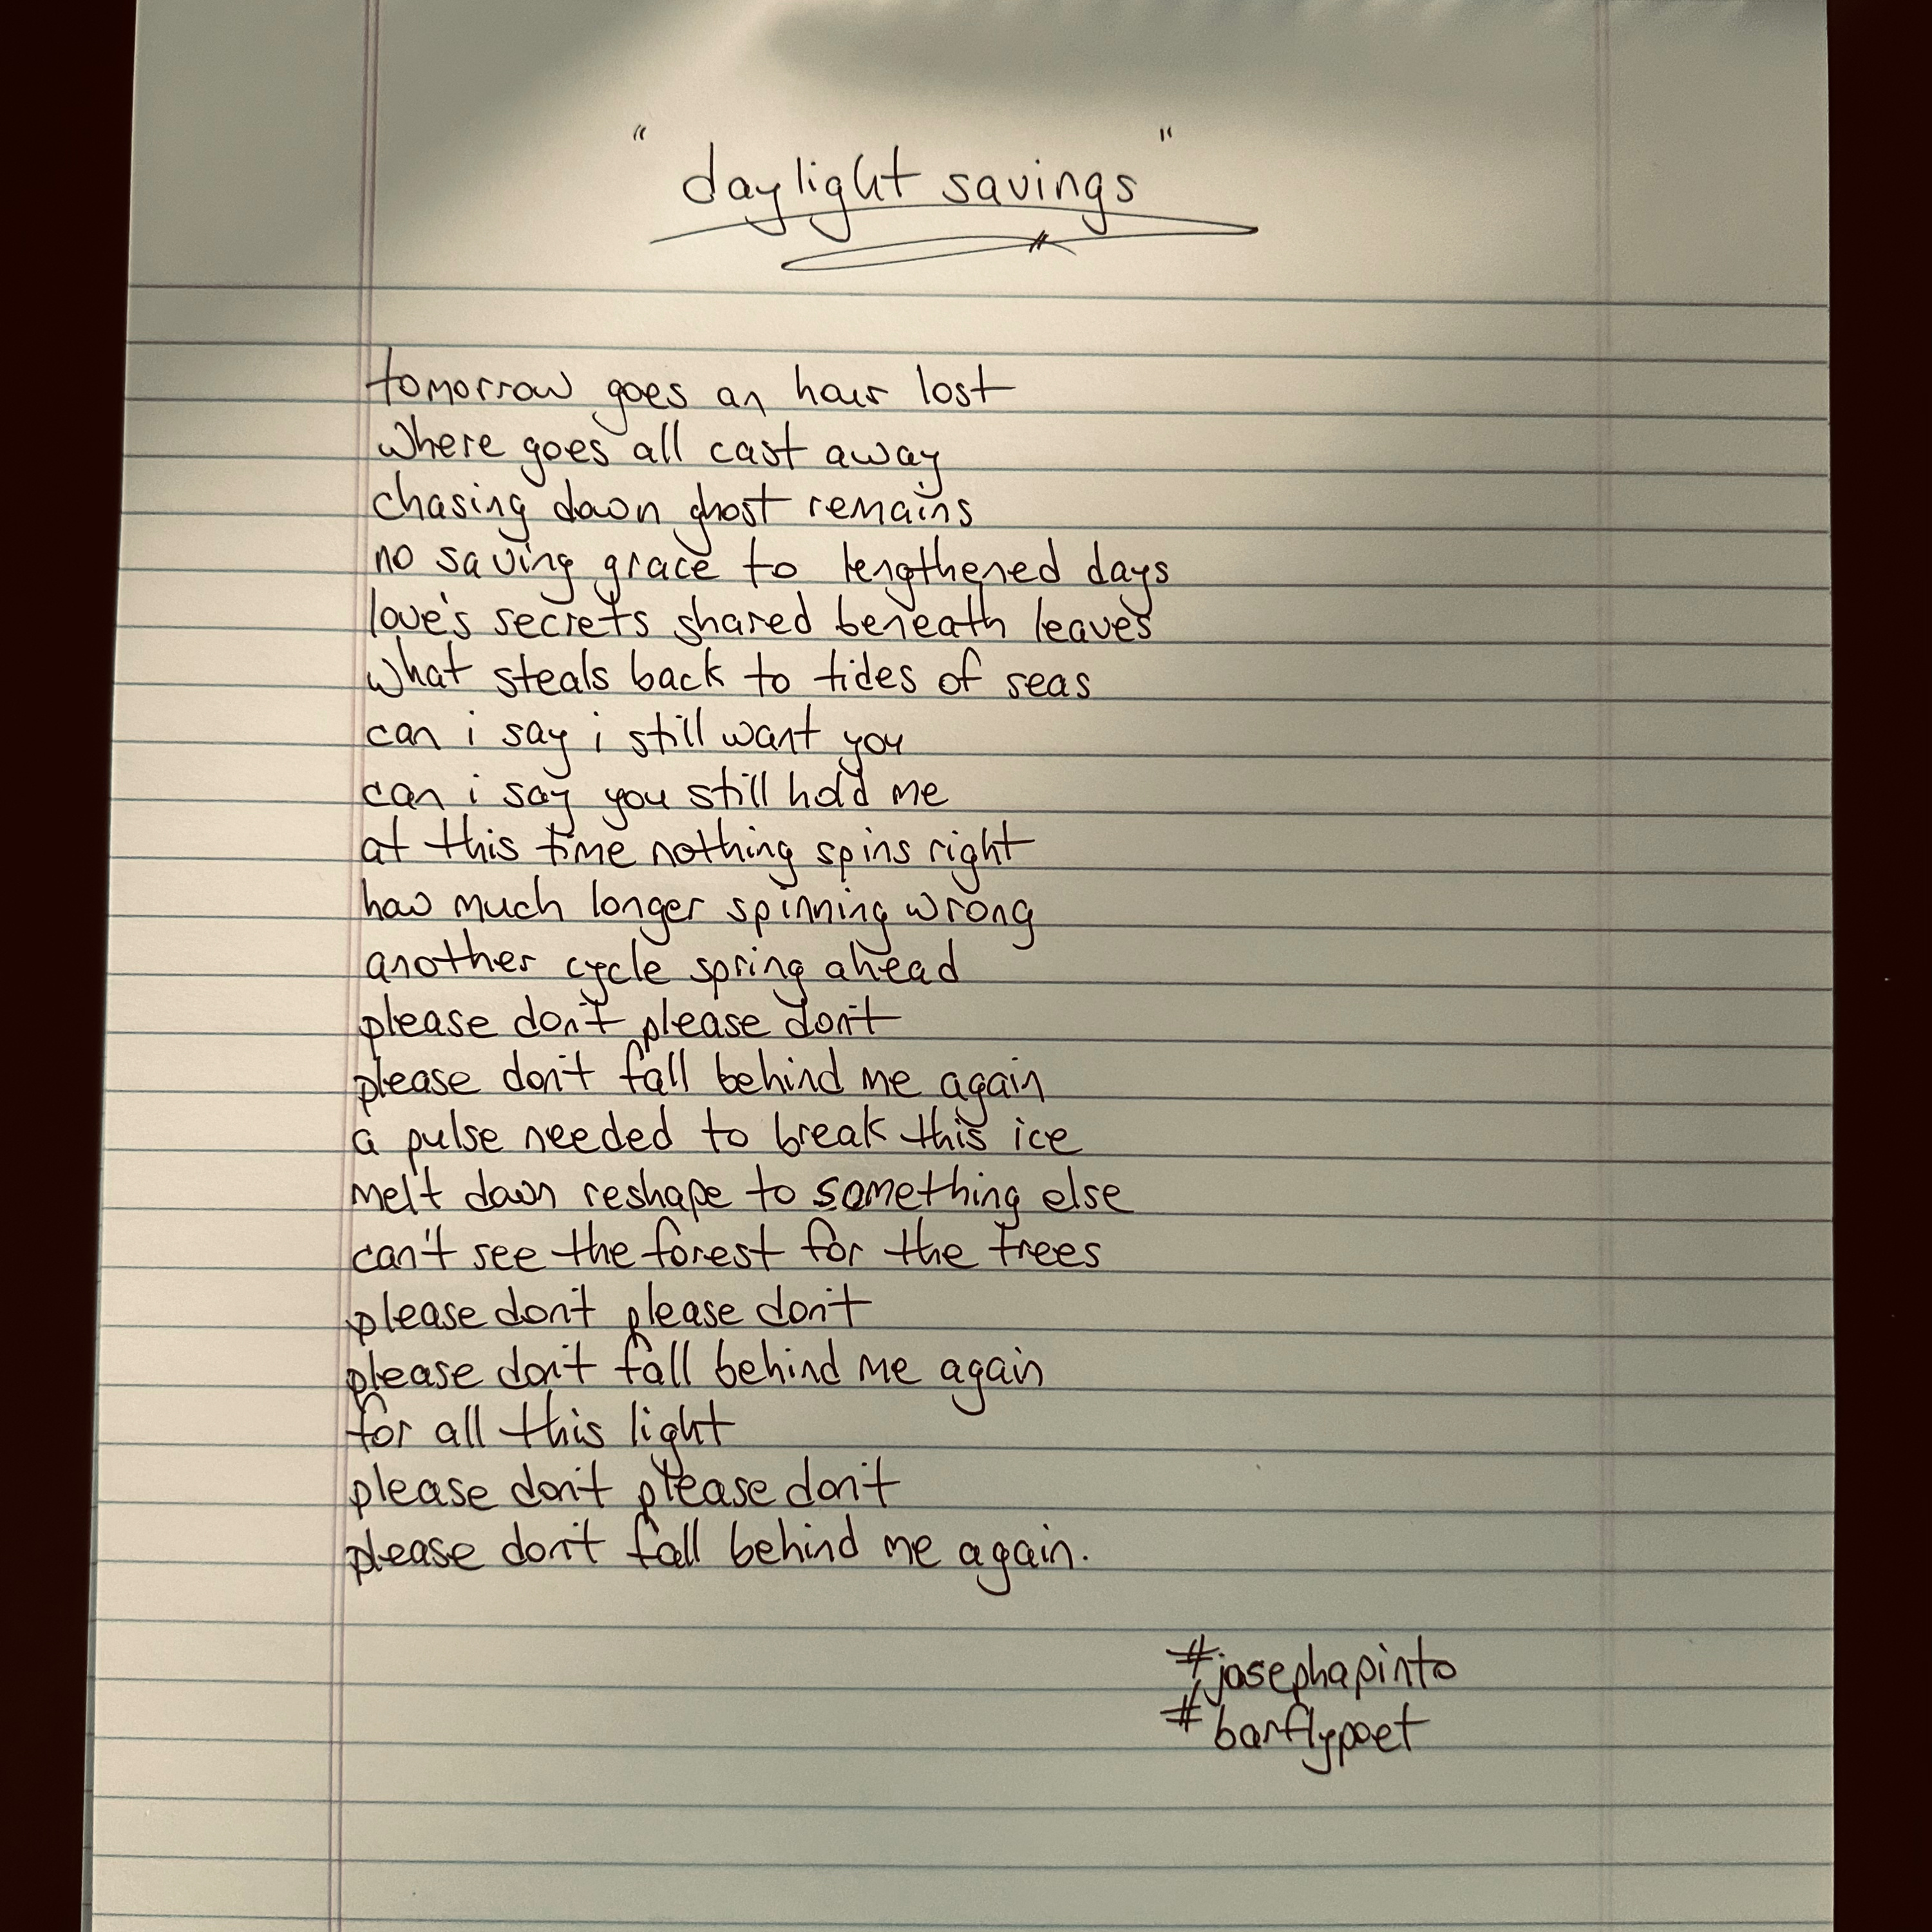 "daylight savings"
tomorrow goes an hour lost
where goes all cast away
chasing down ghost remains
no saving grace to lengthened days
love's secrets shared beneath leaves
what steals back to tides of seas
can i say i still want you
can i say you still hold me
at this time nothing spins right
how much longer spinning wrong
another cycle spring ahead
please don't please don't
please don't fall behind me again
a pulse needed to break this ice
melt down reshape to something else
can't see the forest for the trees
please don't please don't
please don't fall behind me again
for all this light
please don't please don't
please don't fall behind me again.
#josephapinto
#barflypoet